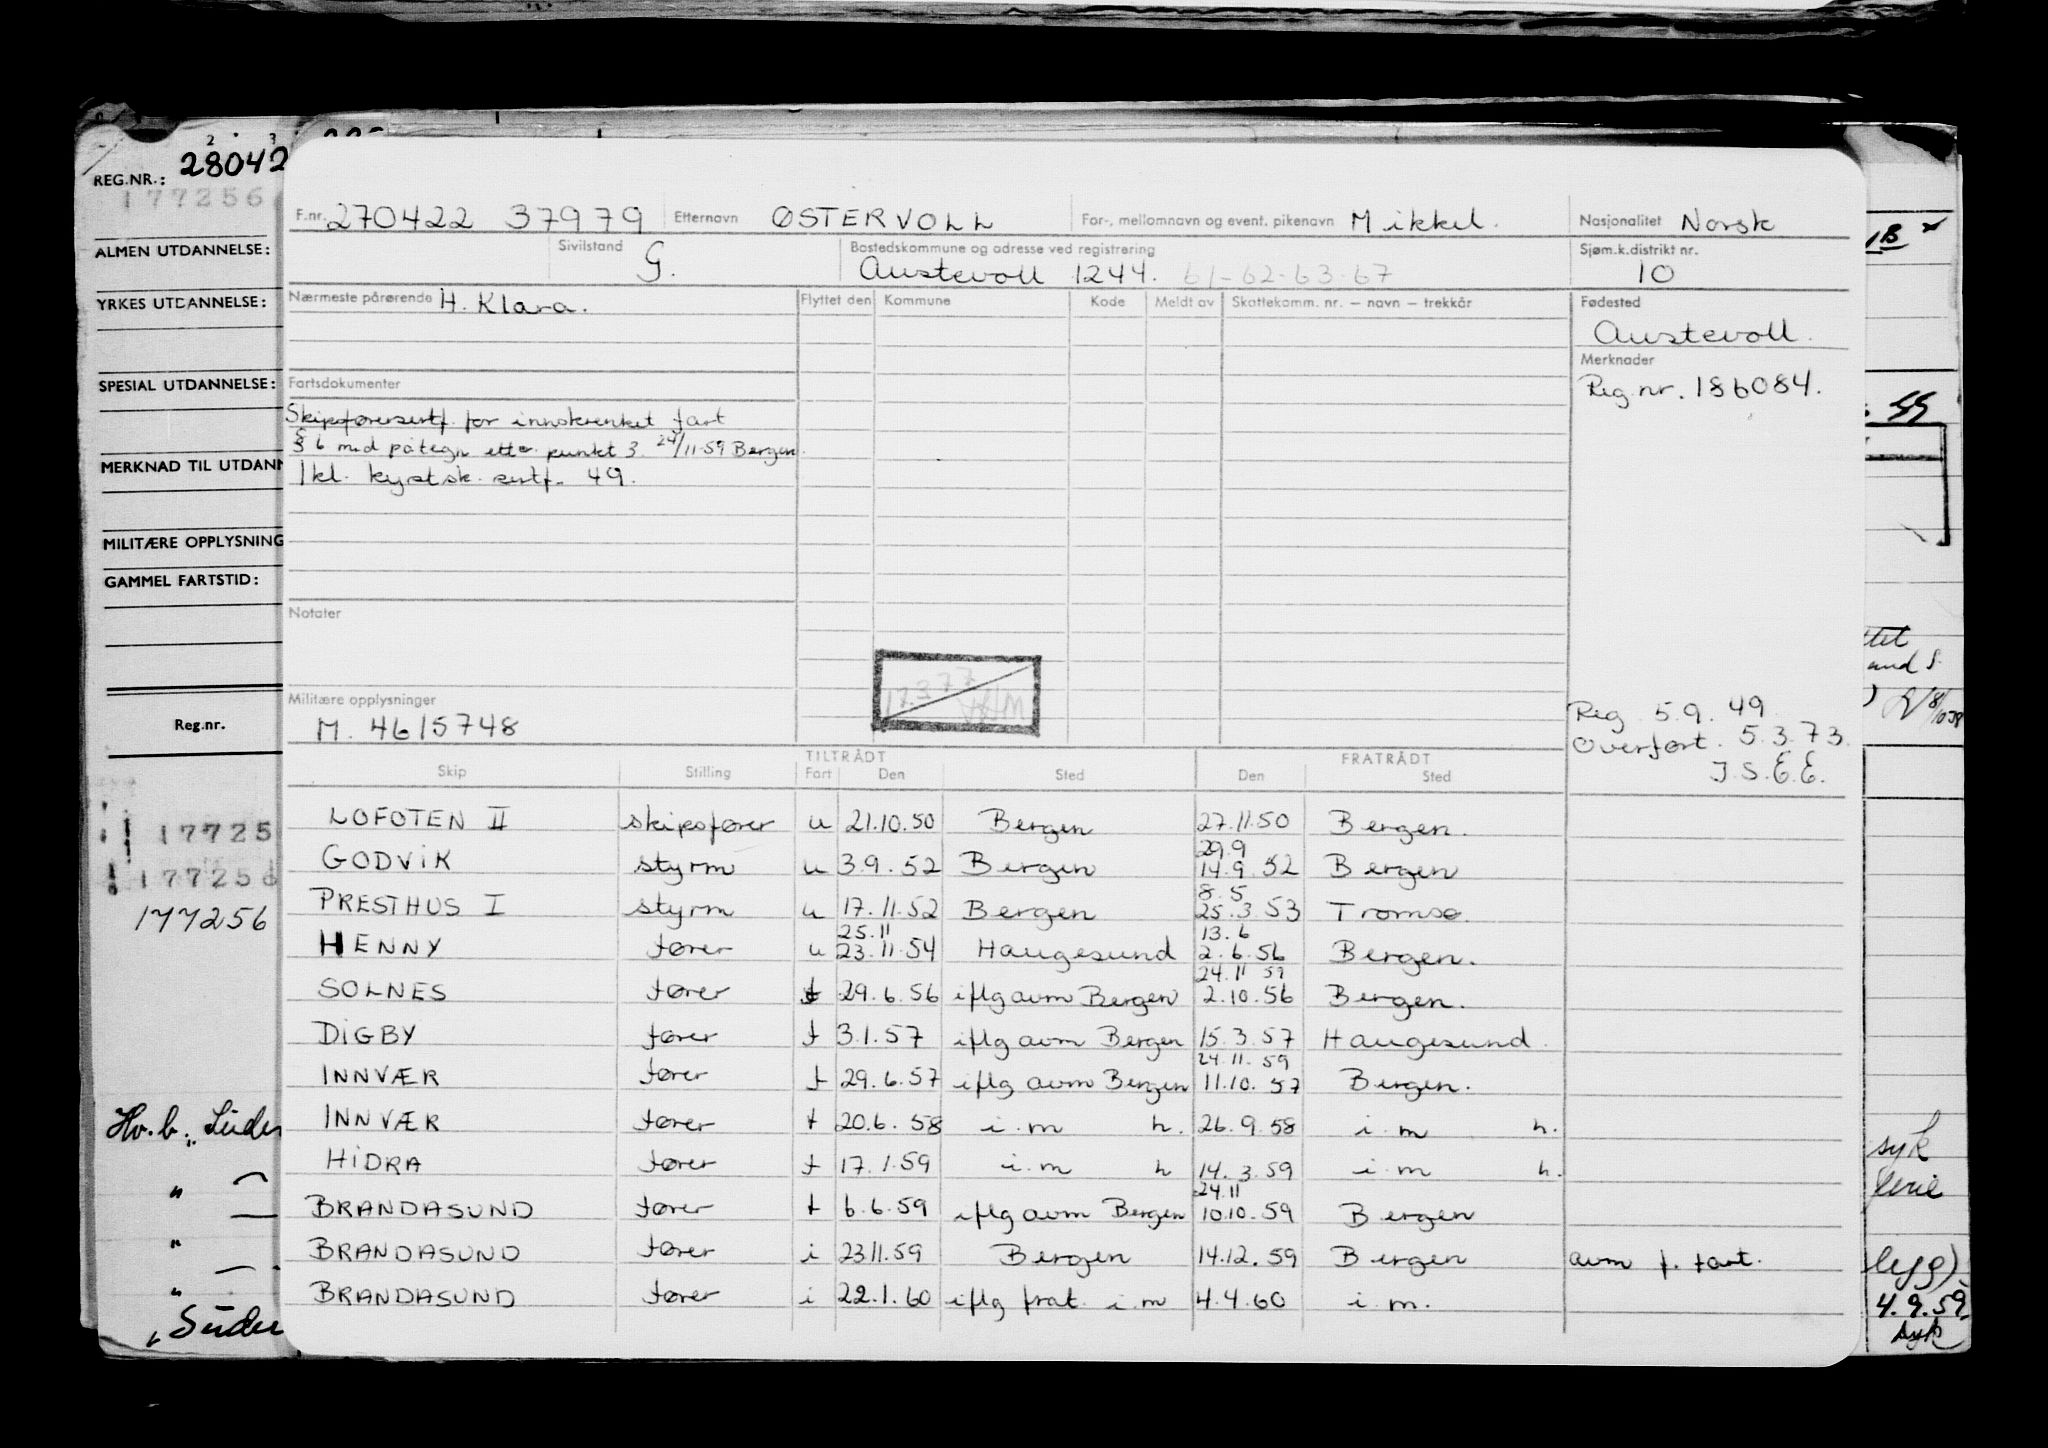 REG.NR.: 28042
177256
ALMEN UTDANNELSE:
YRKES UTDANNELSE:
SPESIAL UTDANNELSE:
MERKNAD TIL UTDANN
MILITÆRE OPPLYSNING
GAMMEL FARTSTID:
Reg.nr.
17725
177256
177256
Hv.b.
F.nr. 270422 37979 Etternavn ØSTERVOLL For-, mellomnavn og event. pikenavn Mikkel. Nasjonalitet Norsk
Sivilstand G. Bostedskommune og adresse ved registrering Austevoll 1244. 61-62-63-67 Sjøm.k.distrikt nr. 10
Nærmeste pårørende H. Klara. Flyttet den Kommune Kode Meldt av Skattekomm. nr. – navn – trekkår Fødested
Austevoll.
Merknader
Reg.nr. 186084.
Fartsdokumenter
Skipsførersertf. for innskrenket fart
§ 6 med påtegn etter punkt 3. 24/11-59 Bergen.
1kl. kystsk. sertf. 49.
Notater
17.3.77
Militære opplysninger
M. 4615748
Reg 5.9.49
Overført. 5.3.73.
J.S.E.E.
TILTRÅDT FRATRÅDT
Skip Stilling Fart Den Sted Den Sted
LOFOTEN II skipsfører u 21.10.50 Bergen 27.11.50 Bergen.
29.9
GODVIK styrm u 3.9.52 Bergen 14.9.52 Bergen
8.5
PRESTHUS I styrm u 17.11.52 Bergen 25.3.53 Tromsø.
25.11 13.6
HENNY fører u 23.11.54 Haugesund 2.6.56 Bergen.
24.11 59
SOLNES fører t 29.6.56 iflg avm Bergen 2.10.56 Bergen.
DIGBY fører t 3.1.57 iflg avm Bergen 15.3.57 Haugesund.
24.11.59
INNVÆR fører t 29.6.57 iflg avm Bergen 11.10.57 Bergen.
INNVÆR fører t 20.6.58 i.m h. 26.9.58 i.m h.
HIDRA fører t 17.1.59 i.m h 14.3.59 i.m h.
24.11
BRANDASUND fører t 6.6.59 iflg avm Bergen 10.10.59 Bergen
BRANDASUND fører i 23.11.59 Bergen 14.12.59 Bergen avm f. fart.
BRANDASUND fører i 22.1.60 iflg frat. i.m 4.4.60 i.m.
syk
legg)
4.9.59
syk